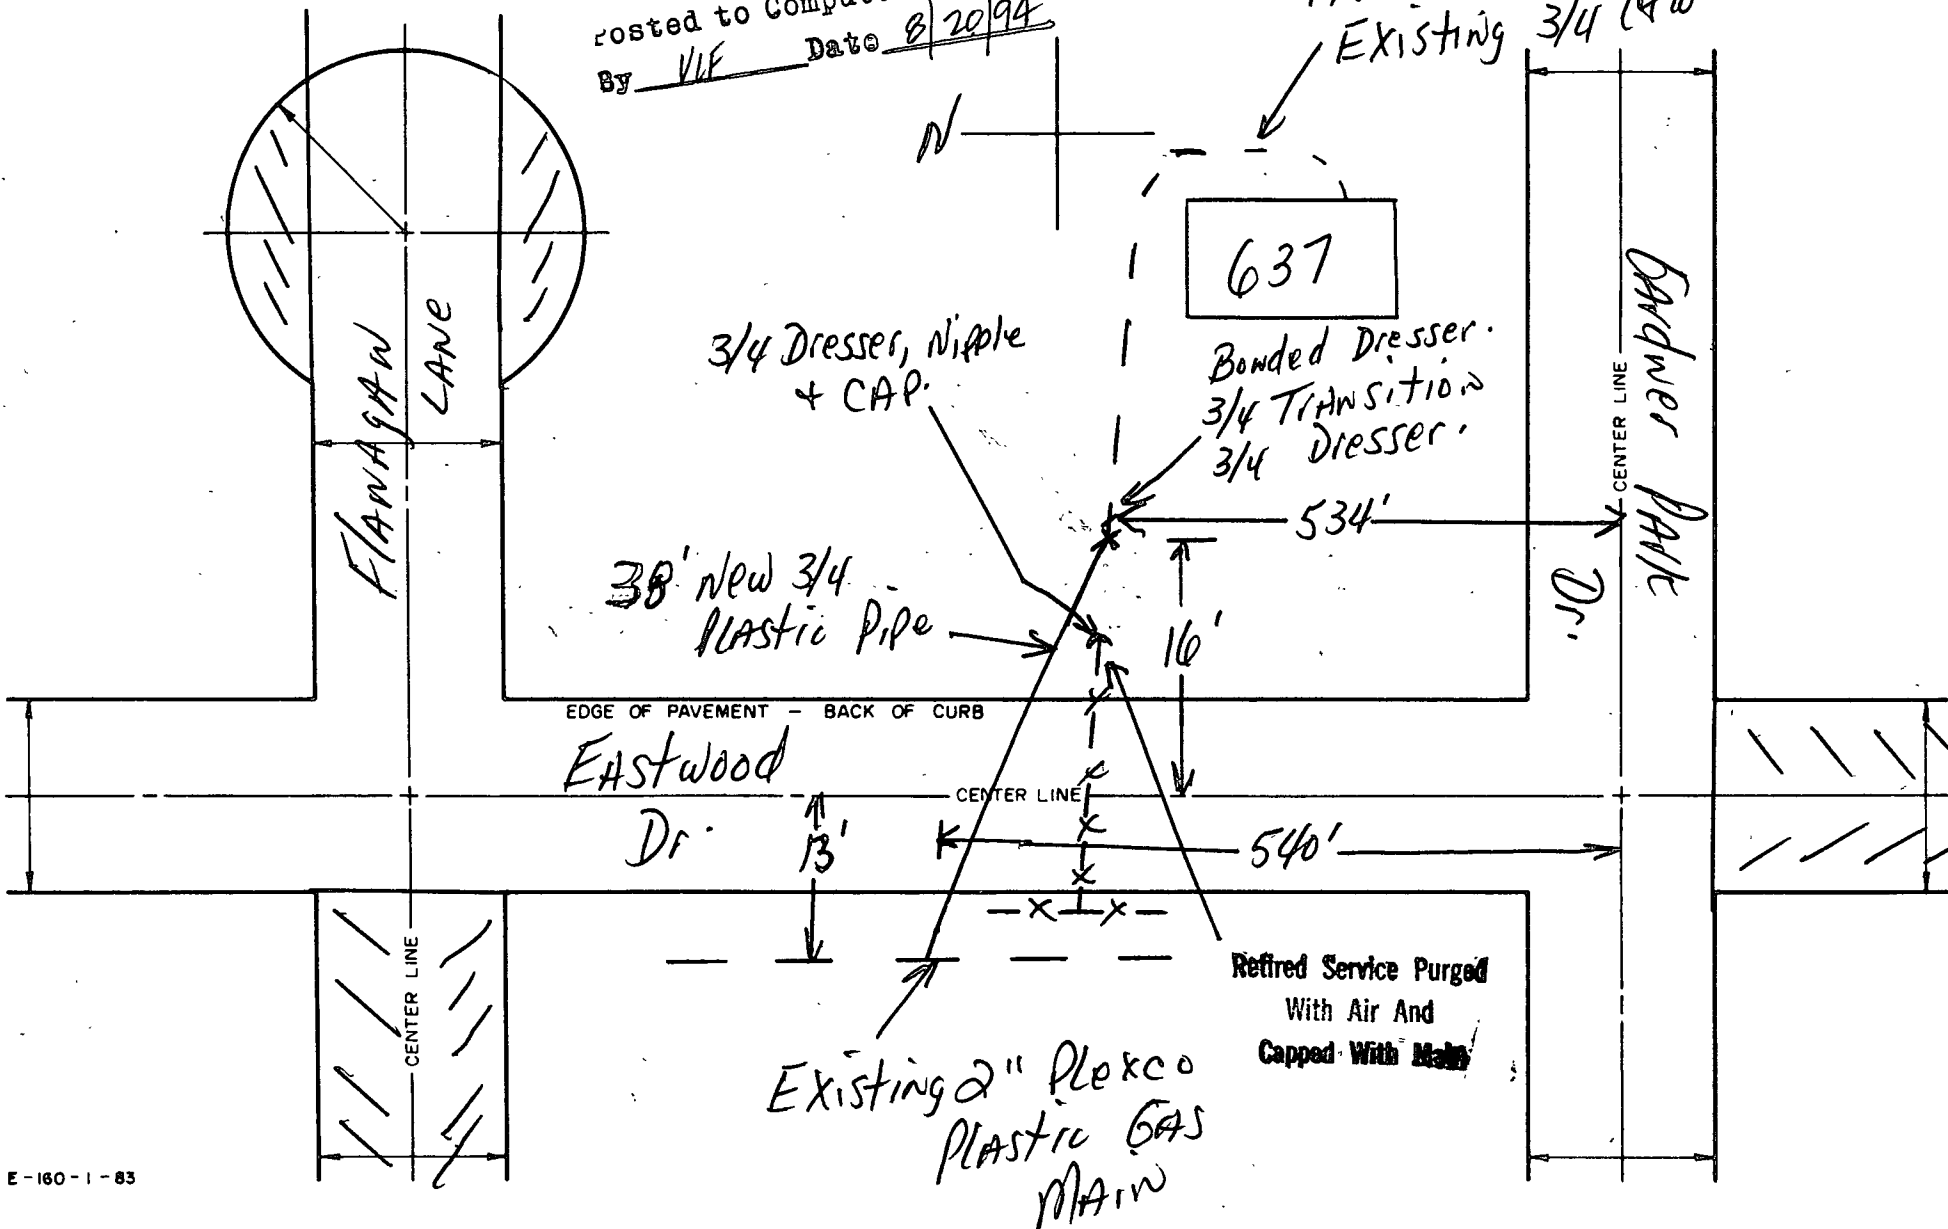 Posted to
By VLF Date 8/20/94
Existing 3/4
N
637
Flanagan
Lane
3/4 Dresser, Nipple
+ CAP.
Bonded Dresser.
3/4 Transition
3/4 Dresser.
CENTER LINE
Park
Dr.
534'
38' New 3/4
Plastic Pipe
16'
EDGE OF PAVEMENT – BACK OF CURB
Eastwood
Dr.
CENTER LINE
13'
540'
CENTER LINE
Retired Service Purged
With Air And
Capped With Main
Existing 2" Plexco
Plastic Gas
Main
E-160-1-83